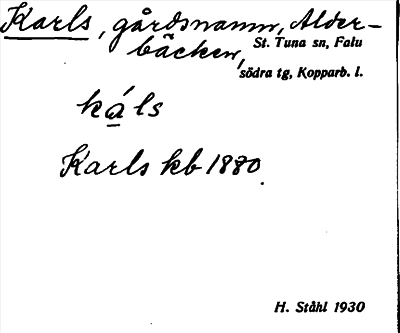 Karls, gårdsnamn, Alder-
bäcken,
St. Tuna sn, Falu
södra tg, Kopparb. l.
ká̱ls
Karls kb 1880.
H. Ståhl 1930